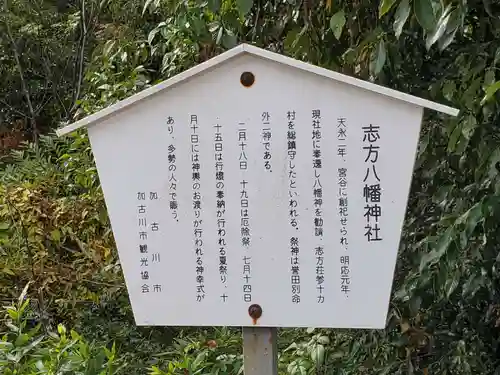 志方八幡神社
天永二年、宮谷に創祀せられ、明応元年、
現社地に奉還し八幡神を勧請、志方荘十カ
村を総鎮守したといわれる。祭神は誉田別命
外二神である。
二月十八日 十九日は厄除祭、七月十四
十五日は行燈の奉納が行われる夏祭り、十
月十日には神輿のお渡りが行われる神幸式が
あり、多勢の人々で賑う。
加古川市
加古川市観光協会